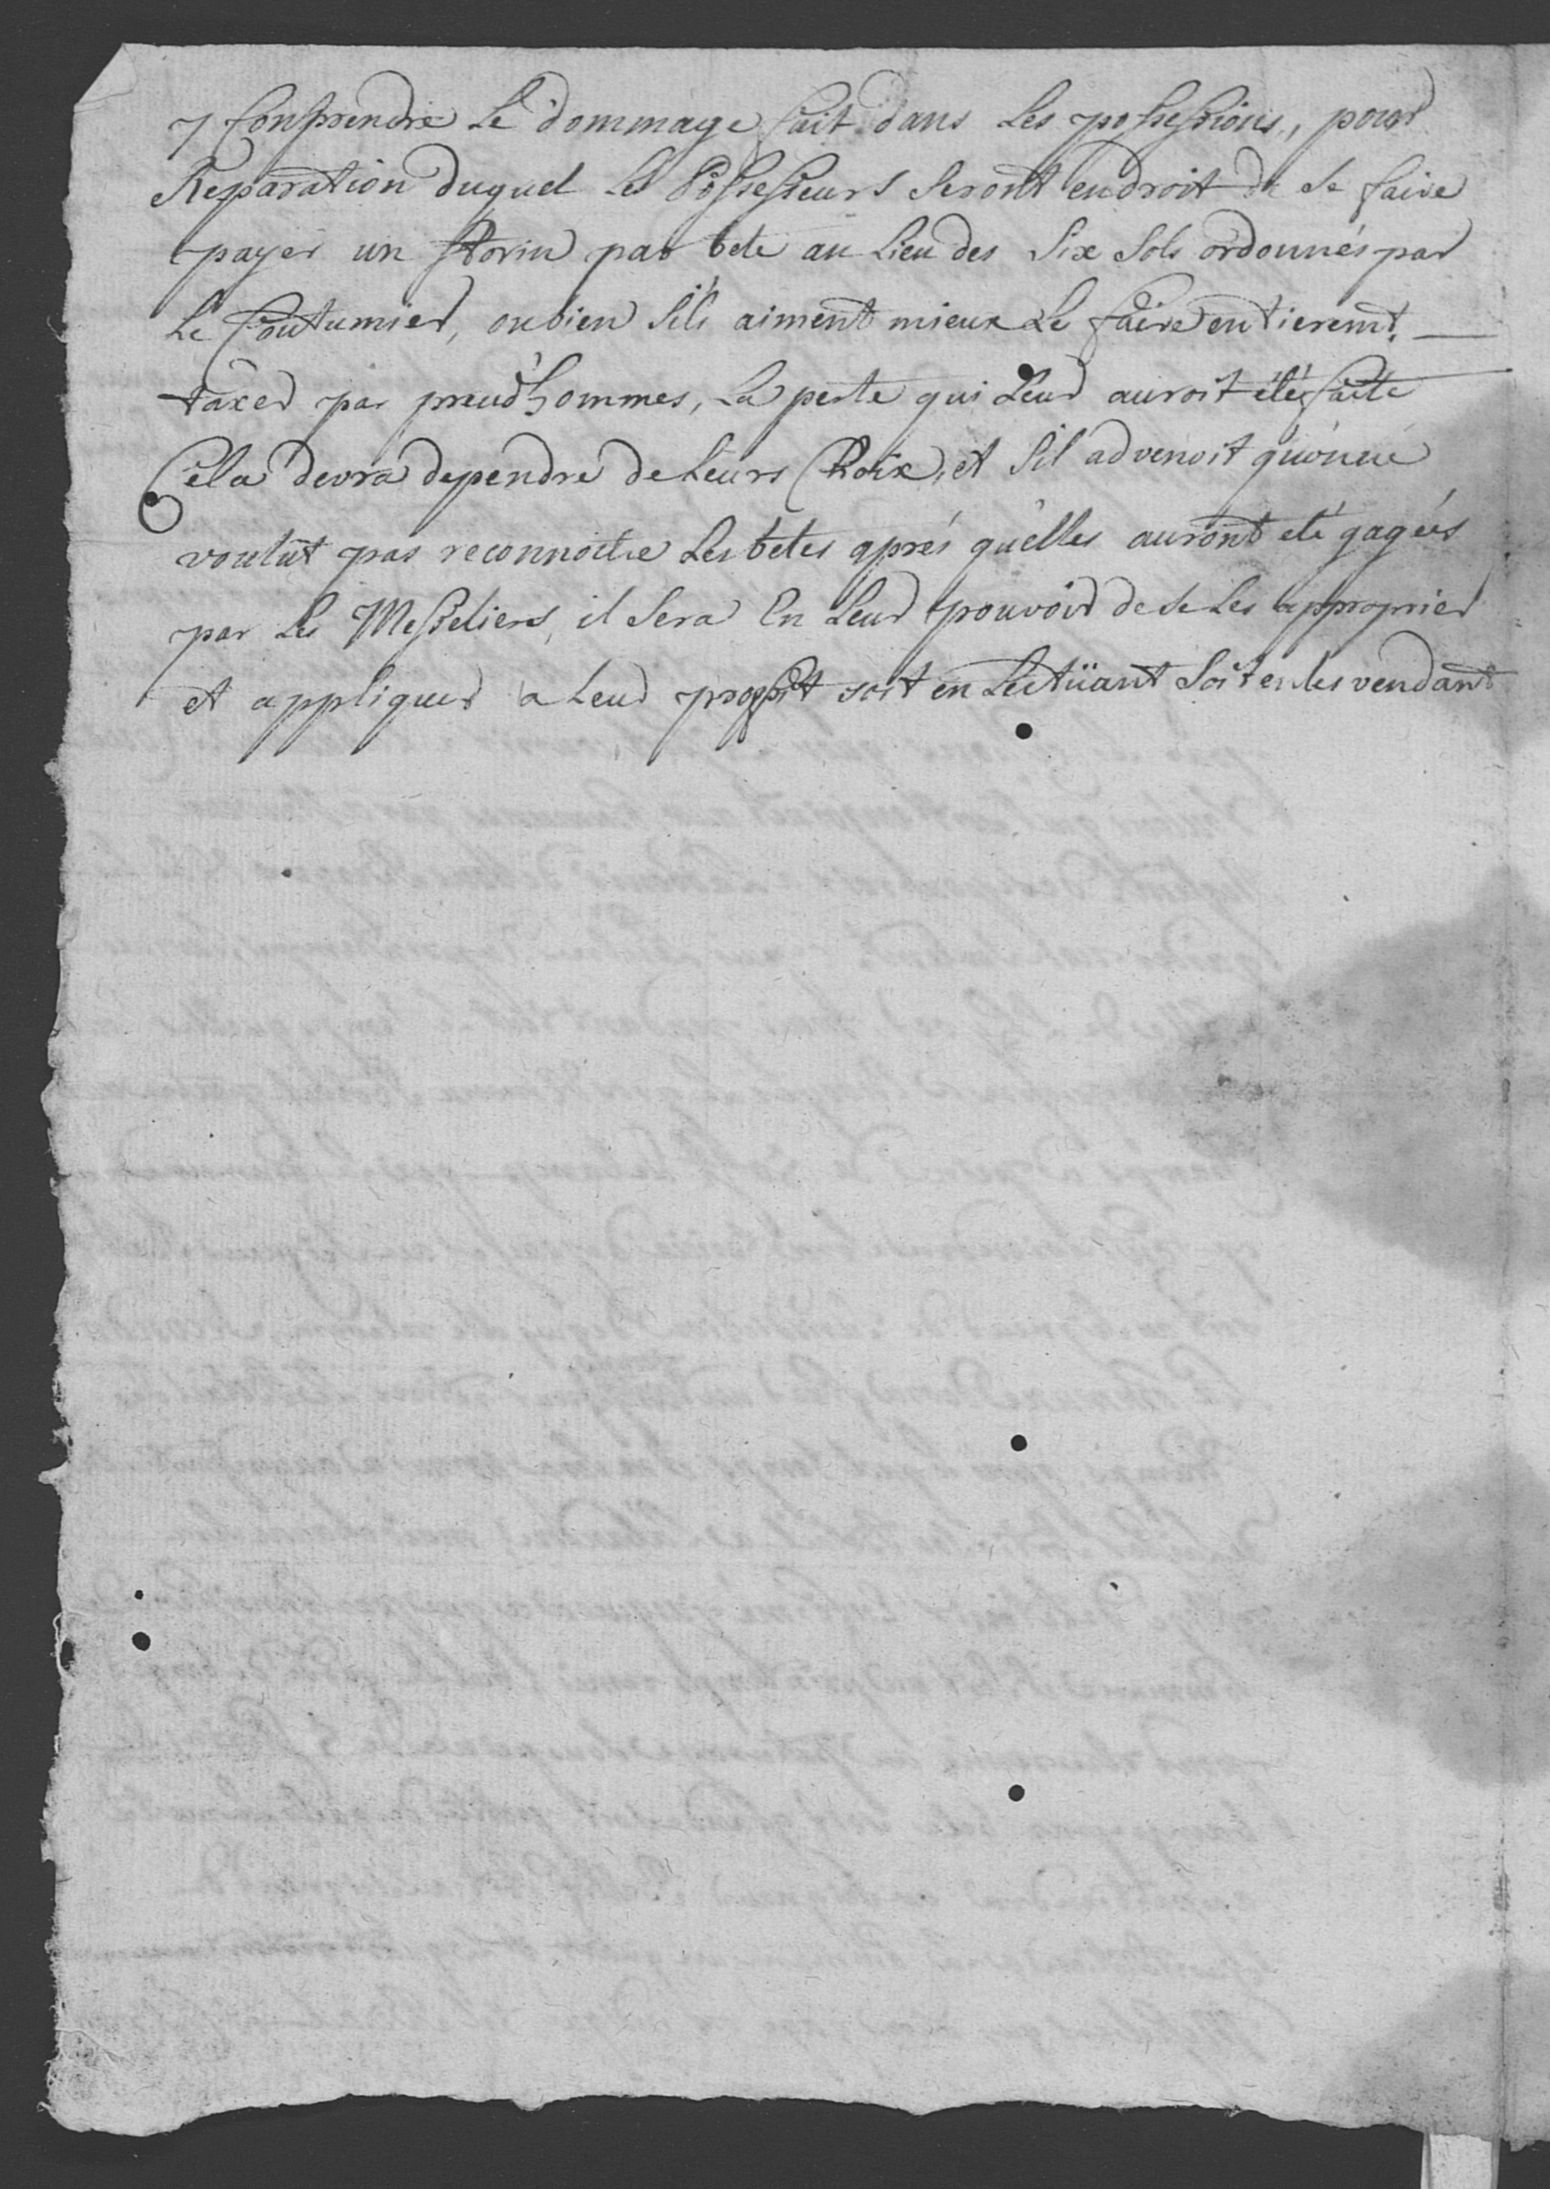 y Comprendre Le dommage fait dans Les possessions, pour
Reparation duquel Les Possesseurs Seront en droit de se faire
payer un florin par bete au Lieu des Six Sols ordonnés par
Le Coutumier, ou bien Sils aiment mieux Le faire entieremt.
tâxer par preud'hommes, La perte qui Leur auroit été faite
Cela devra dependre de Leurs Choix, et Sil advenoit qu'on ne
voulut pas reconnoitre Les betes aprés qu'elles auront été gagées
par Les Messeliers, il Sera En Leur pouvoir de se Les approprier
et appliquer a Leur proffit soit en Les tüant Soit en les vendant